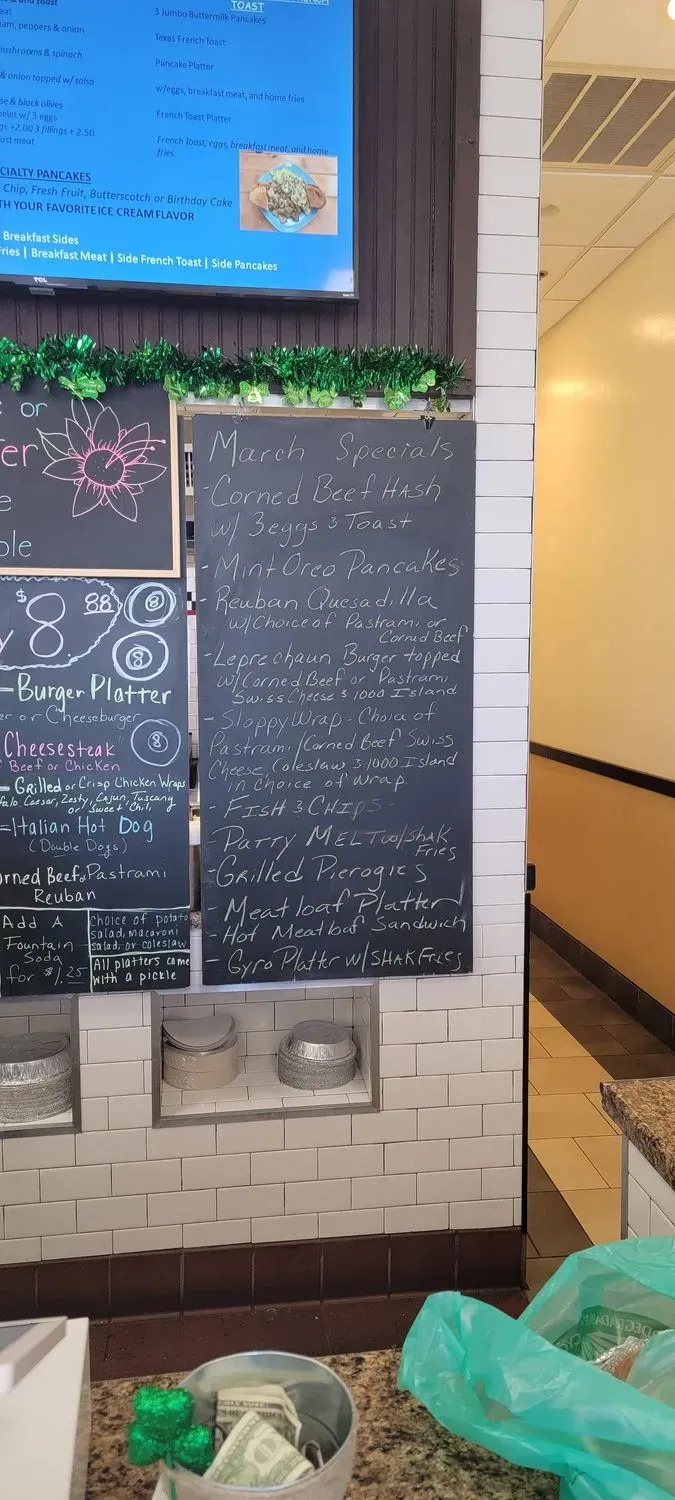 TOAST
3 Jumbo Buttermilk Pancakes
Texas French Toast
Pancake Platter
w/eggs, breakfast meat, and home fries
French Toast Platter
French Toast, eggs, breakfast meat, and home
fries
eat
am, peppers & onion
mushrooms & spinach
& onion topped w/ salsa
se & black olives
elet w/ 3 eggs
gs +2.00 3 fillings + 2.50
ast meat
CIALTY PANCAKES
Chip, Fresh Fruit, Butterscotch or Birthday Cake
TH YOUR FAVORITE ICE CREAM FLAVOR
Breakfast Sides
Fries | Breakfast Meat | Side French Toast | Side Pancakes
TCL
or
er
e
ole
$8 88
8
8
y
- Burger Platter
er or Cheeseburger
Cheesesteak
8
Beef or Chicken
- Grilled or Crisp Chicken Wraps
falo Caesar, Zesty, Cajun, Tuscany
or Sweet Chili
= Italian Hot Dog
(Double Dogs)
orned Beef or Pastrami
Reuban
Add A
Fountain
Soda
for $1.25
Choice of potato
salad, macaroni
salad, or coleslaw
All platters come
with a pickle
March Specials
- Corned Beef HASH
w/ 3 eggs & Toast
- Mint Oreo Pancakes
- Reuban Quesadilla
w/Choice of Pastrami or
Corned Beef
- Leprechaun Burger topped
w/Corned Beef or Pastrami,
Swiss Cheese & 1000 Island
- Sloppy Wrap - Choia of
Pastrami/Corned Beef Swiss
Cheese, Coleslaw & 1000 Island
in Choice of wrap
- FISH & CHIPS
- PATTY MELT w/SHAK
Fries
- Grilled Pierogies
- Meatloaf Platter
- Hot Meatloaf Sandwich
- Gyro Platter w/SHAK Fries